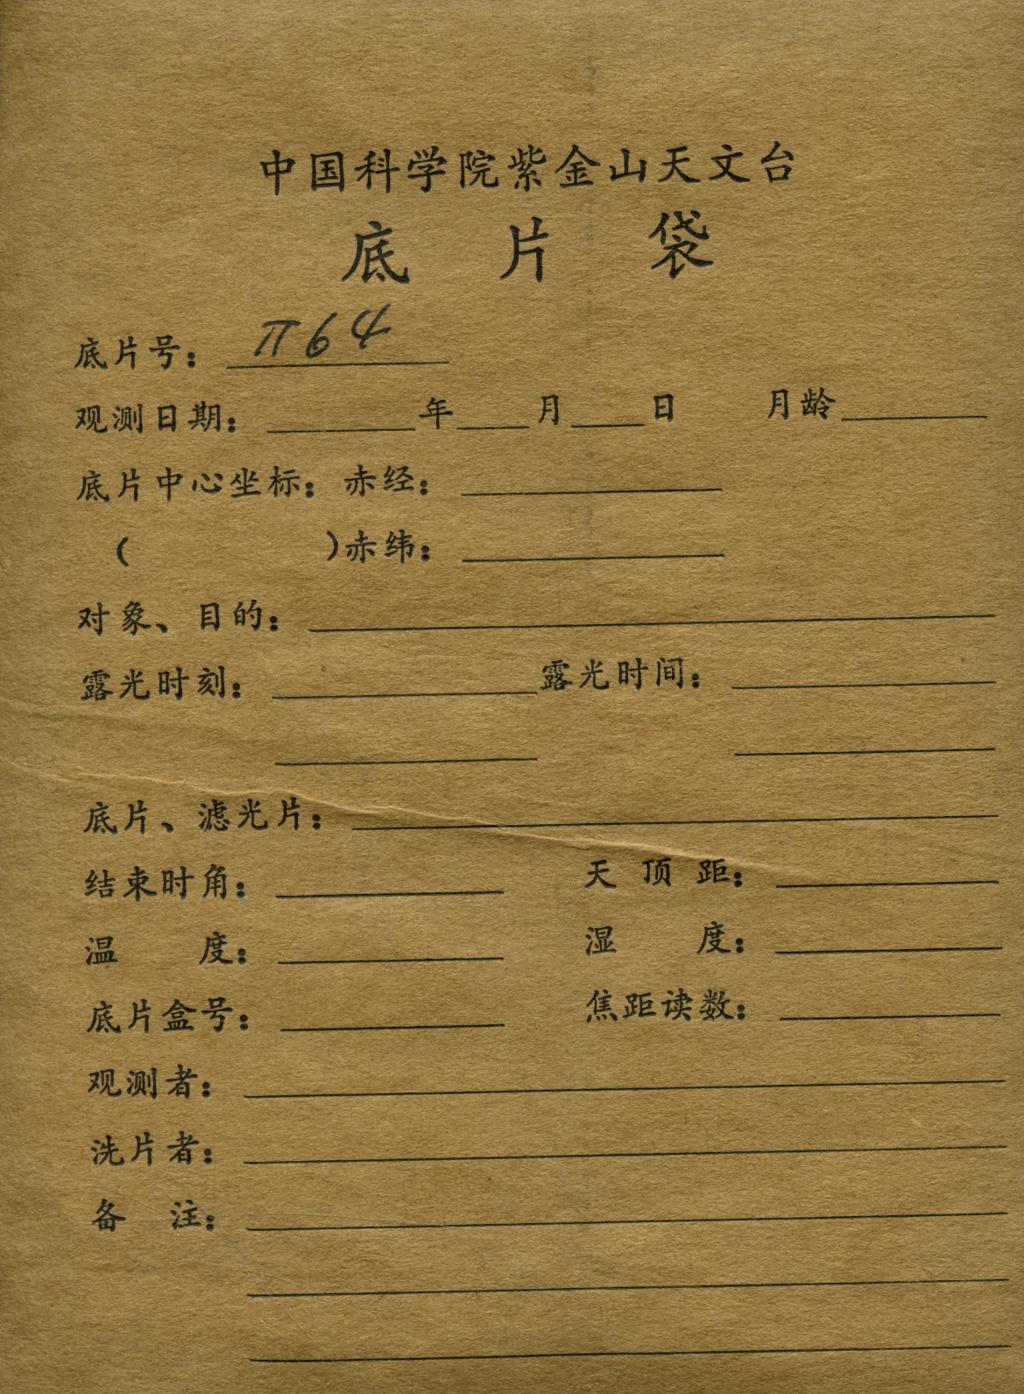 中国科学院紫金山天文台
底 片 袋
底片号： Ⅱ64
观测日期： 年 月 日 月龄
底片中心坐标：赤经：
( )赤纬：
对象、目的：
露光时刻： 露光时间：
底片、滤光片：
结束时角： 天 顶 距：
温 度： 湿 度：
底片盒号： 焦距读数：
观测者：
洗片者：
备 注：